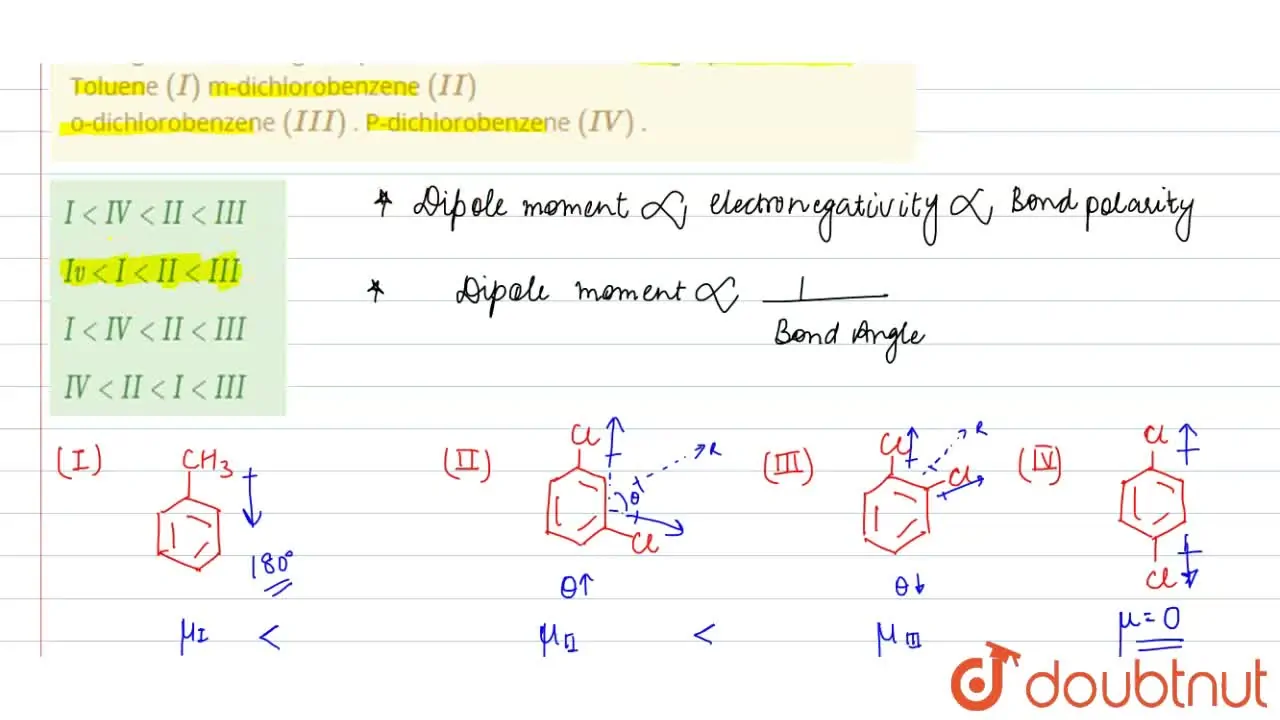 Toluene (I) m-dichlorobenzene (II)
o-dichlorobenzene (III) . P-dichlorobenzene (IV) .
I < IV < II < III
Iv < I < II < III
I < IV < II < III
IV < II < I < III
* Dipole moment ∝ electronegativity ∝ Bond polarity
* Dipole moment ∝ 1
Bond Angle
(I) CH3
180°
μI <
(II) Cl
R
θ
Cl
θ↑
μII <
(III) Cl
R
Cl
θ↓
μIII
(IV) Cl
Cl
μ = 0
doubtnut